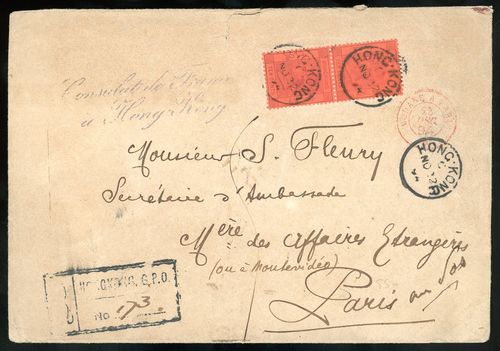 Consulat de France
à Hong-Kong
HONG-KONG
HONG-KONG
HONG-KONG
NO 22
Monsieur S. Fleury
Secrétaire d'Ambassade
Mère des Affaires Etrangères
(ou à Montevideo)
Paris
HONGKONG, G.P.O.
No. 173